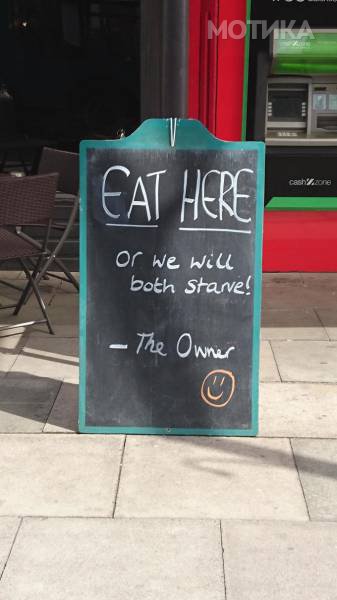 МОТИКА
cashzone
EAT HERE
Or we will
both starve!
– The Owner
cashzone